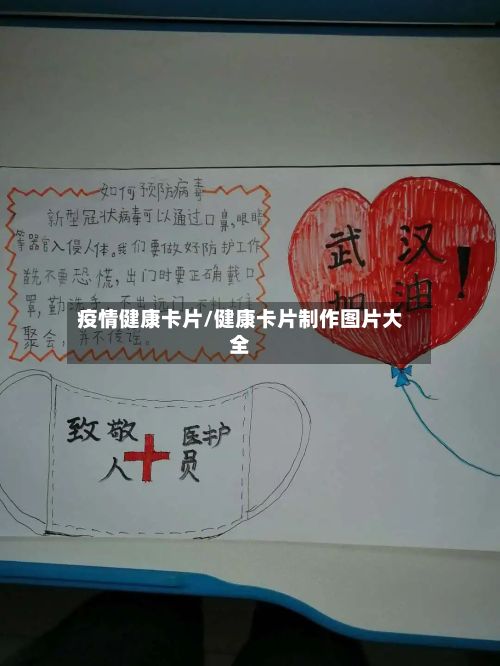 如何预防病毒
新型冠状病毒可以通过口鼻,眼睛
等器官入侵人体。我们要做好防护工作
就不要恐慌,出门时要正确戴口
罩,勤洗手
疫情健康卡片/健康卡片制作图片大
全
聚会,并不传谣。
武汉
加油!
致敬 医护
人员